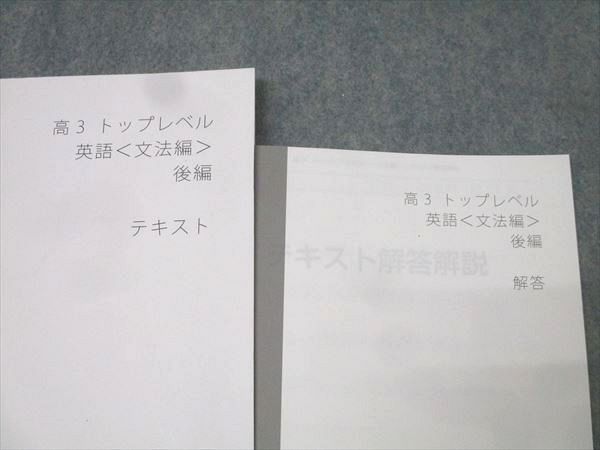 高3 トップレベル
英語<文法編>
後編
テキスト
高3 トップレベル
英語<文法編>
後編
解答
テキスト解答解説